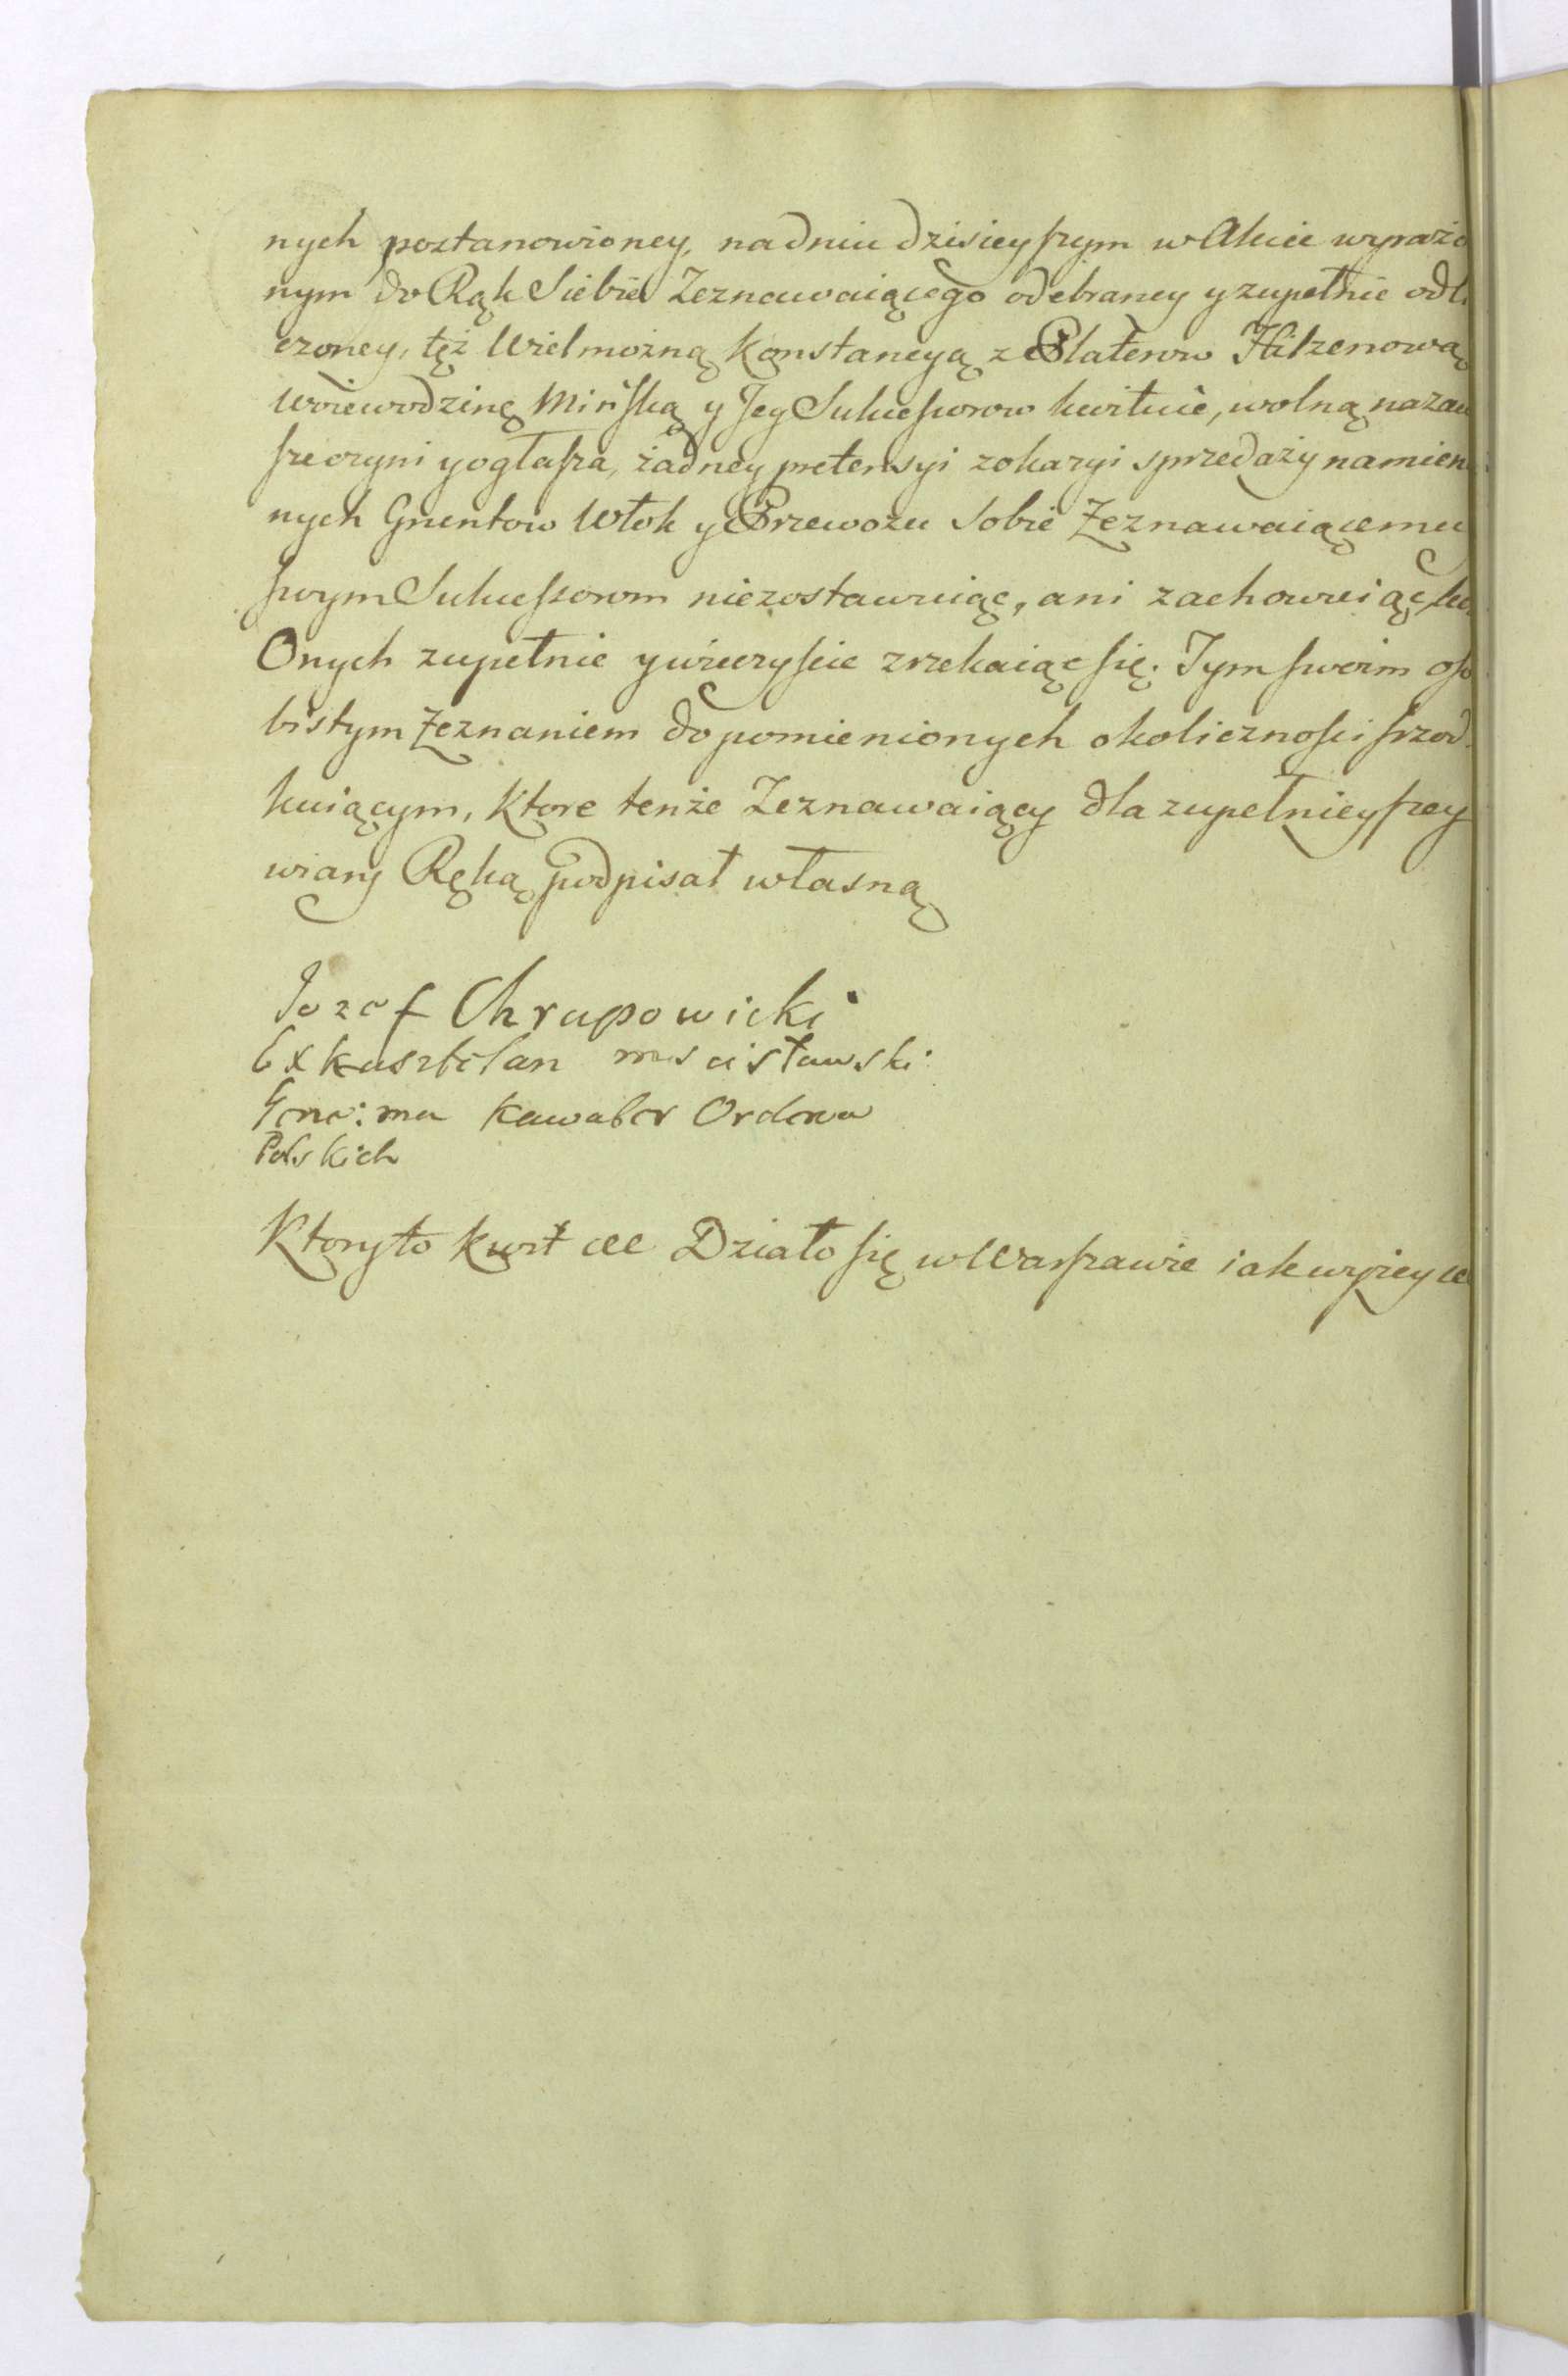 nych postanowioney, na dniu dzisieyszym w Akcie wyrażo
nym do Rąk Siebie Zeznawaiącego odebraney y zupełnie odli
czoney, tęż Wielmożną Konstancyą z Platerow Hilzenową
Woiewodzinę Mińską y Jey Sukcessorow kwituie, wolną nazaw
sze czyni y ogłasza, żadney pretensyi z okazyi sprzedaży namienio
nych Gruntow Włok y Przewozu Sobie Zeznawaiącemu
swym Sukcessorom niezostawuiąc, ani zachowuiąc lecz
Onych zupełnie y wieczyscie zrzekaiąc się. Tym swoim oso
bistym Zeznaniem do pomienionych okolicznosci
kuiącym, Ktore tenże Zeznawaiący dla zupełnieyszey
wiary Ręką podpisał własną
Jozef Chrapowicki
Exkasztelan mscisławski
kawaler Orderow
Polskich
Ktoryto Kwit etc Działo się w Warszawie iak wyżey